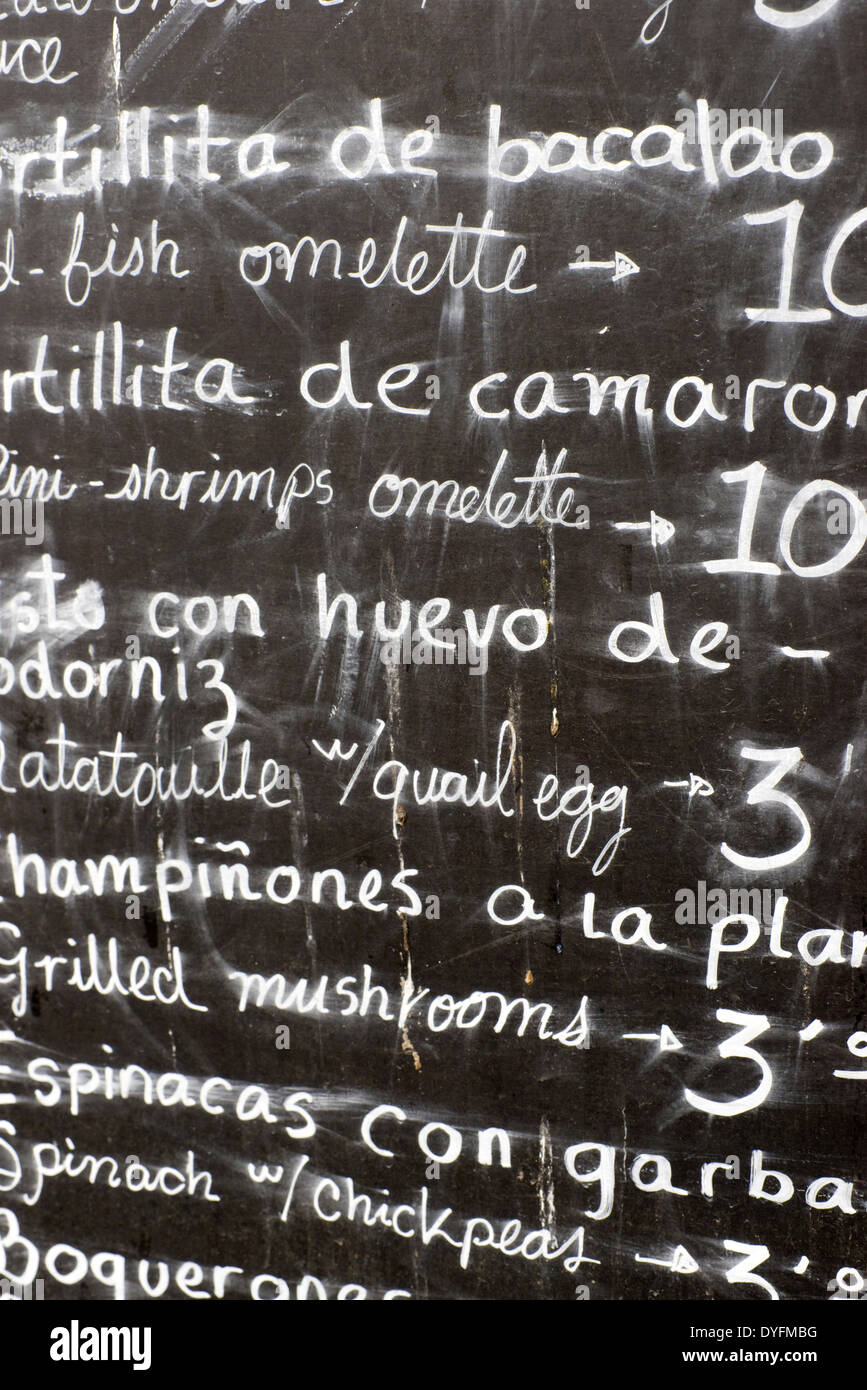 uce
ortillita de bacalao
d-fish omelette → 10
rtillita de camaron
ini-shrimps omelette → 10
isto con huevo de -
odorniz
Ratatouille w/quail egg → 3'
Champiñones a la plan
Grilled mushrooms → 3'0
Espinacas con garba
Spinach w/chickpeas → 3'0
Boquerones
alamy
Image ID: DYFMBG
www.alamy.com